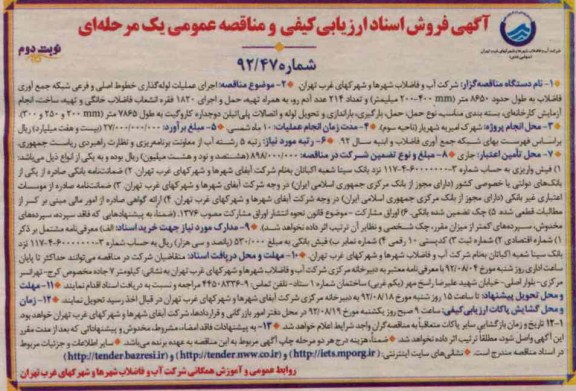 آگهی فروش اسناد ارزیابی کیفی و مناقصه عمومی یک مرحله‌ای
نوبت دوم
شماره ۹۲/۴۷
۱- نام دستگاه مناقصه‌گزار: شرکت آب و فاضلاب شهرها و شهرکهای غرب تهران. ۲- موضوع مناقصه: اجرای عملیات لوله‌گذاری خطوط اصلی و فرعی شبکه جمع آوری
فاضلاب به طول حدود ۸۶۵۰ متر (۴۰۰-۲۰۰ mm میلیمتر) و تعداد ۲۱۴ عدد آدم رو، به همراه تهیه، حمل و اجرای ۱۸۲۰ فقره انشعاب فاضلاب خانگی و تهیه، ساخت، انجام
آزمایش کارخانه‌ای، بسته بندی مناسب، نوع حمل، حمل، بارگیری، باراندازی و تحویل لوله و اتصالات پلی‌اتیلن دوجداره کاروگیت به طول ۷۸۶۵ متر (mm ۲۰۰ و ۲۵۰ و ۳۰۰).
۳- محل انجام پروژه: شهرک امیریه شهریار (ناحیه سوم) ۴- مدت زمان انجام عملیات: ۱۰ ماه شمسی. ۵- مبلغ برآورد: ۲۷/۰۰۰/۰۰۰/۰۰۰ (بیست و هفت میلیارد) ریال
براساس فهرست بهای شبکه جمع آوری فاضلاب و ابنیه سال ۹۲ ۶- رتبه مورد نیاز: رتبه ۵ رشته آب از معاونت برنامه‌ریزی و نظارت راهبردی ریاست جمهوری.
۷- محل تأمین اعتبار: جاری ۸- مبلغ و نوع تضمین شرکت در مناقصه: ۸۹۸/۰۰۰/۰۰۰ (هشتصد و نود و هشت میلیون) ریال بوده و به یکی از انواع ذیل می‌باشد:
۱) فیش واریزی به حساب شماره نزد بانک سینا شعبه اکباتان به‌نام شرکت آبفای شهرها و شهرکهای غرب تهران ۲) ضمانت‌نامه بانکی صادره از یکی از
بانک‌های دولتی یا خصوصی کشور (دارای مجوز از بانک مرکزی جمهوری اسلامی ایران) در وجه شرکت آبفای شهرها و شهرکهای غرب تهران ۳) ضمانت‌نامه صادره از موسسات
اعتباری غیر بانکی (دارای مجوز از بانک مرکزی جمهوری اسلامی ایران) در وجه شرکت آبفای شهرها و شهرکهای غرب تهران. ۴) ارائه گواهی صادره از امور مالی مبنی بر کسر از
مطالبات قطعی شده ۵) چک تضمین شده بانکی. ۶) اوراق مشارکت - موضوع قانون نحوه انتشار اوراق مشارکت مصوب ۱۳۷۶. (ضمناً، به پیشنهادهایی که فاقد سپرده، سپرده‌های
مخدوش، سپرده‌های کمتر از میزان مقرر، چک شخصی و نظایر آن ترتیب اثر داده نخواهد شد) ۹- مدارک مورد نیاز جهت خرید اسناد: الف) معرفی‌نامه مشتمل بر ذکر
۱) شماره اقتصادی ۲) شماره ثبت ۳) کدپستی ۱۰ رقمی ۴) شماره نمابر ب) فیش بانکی به مبلغ ۵۳۰/۰۰۰ (پانصد و سی هزار) ریال به حساب شماره نزد
بانک سینا شعبه اکباتان به‌نام شرکت آب و فاضلاب شهرها و شهرکهای غرب تهران. ۱۰- مهلت و محل دریافت اسناد: متقاضیان شرکت در مناقصه می‌توانند حداکثر تا پایان
ساعت اداری روز شنبه مورخ ۹۲/۰۸/۰۴ با معرفی‌نامه معتبر به دبیرخانه مرکزی شرکت آب و فاضلاب شهرها و شهرکهای غرب تهران به نشانی: کیلومتر ۷ جاده مخصوص کرج- تهرانسر
مرکزی- بلوار اصلی- خیابان شهید علیرضا راسخ مهر (یکم غربی) ساختمان شماره ۱ استاد- تلفن تماس: ۹-۴۴۵۰۸۳۳۶ مراجعه و نسبت به دریافت اسناد اقدام نمایند. ۱۱- مهلت
و محل تحویل پیشنهاد: تا ساعت ۱۵ روز شنبه مورخ ۹۲/۰۸/۱۸ به دبیرخانه مرکزی شرکت آبفای شهرها و شهرکهای غرب تهران در قبال اخذ رسید تحویل نمایند. ۱۲- زمان
و محل گشایش پاکات ارزیابی کیفی: ساعت ۹ صبح روز یکشنبه مورخ ۹۲/۰۸/۱۹ در محل دفتر امور بازرگانی و قراردادها، شرکت آبفای شهرها و شهرکهای غرب تهران خواهد بود.
۱-۱۲ تاریخ و زمان بازگشایی سایر پاکات متعاقباً به مناقصه‌گران واجد شرایط اعلام خواهد شد. ۱۳- به پیشنهادات فاقد امضاء، مشروط، مخدوش و پیشنهاداتی که بعد از مدت مقرر
این آگهی واصل شود، مطلقاً ترتیب اثر داده نخواهد شد. ضمناً، هزینه درج هر دو مرحله چاپ آگهی مربوط به این مناقصه به عهده برنده می‌باشد. سایر اطلاعات و جزئیات مربوط
در اسناد مناقصه مندرج است. نشانی‌های سایت اینترنتی: (http://iets.mporg.ir) و (http://tender.nww.co.ir) و (http://tender.bazresi.ir)
روابط عمومی و آموزش همگانی شرکت آب و فاضلاب شهرها و شهرکهای غرب تهران